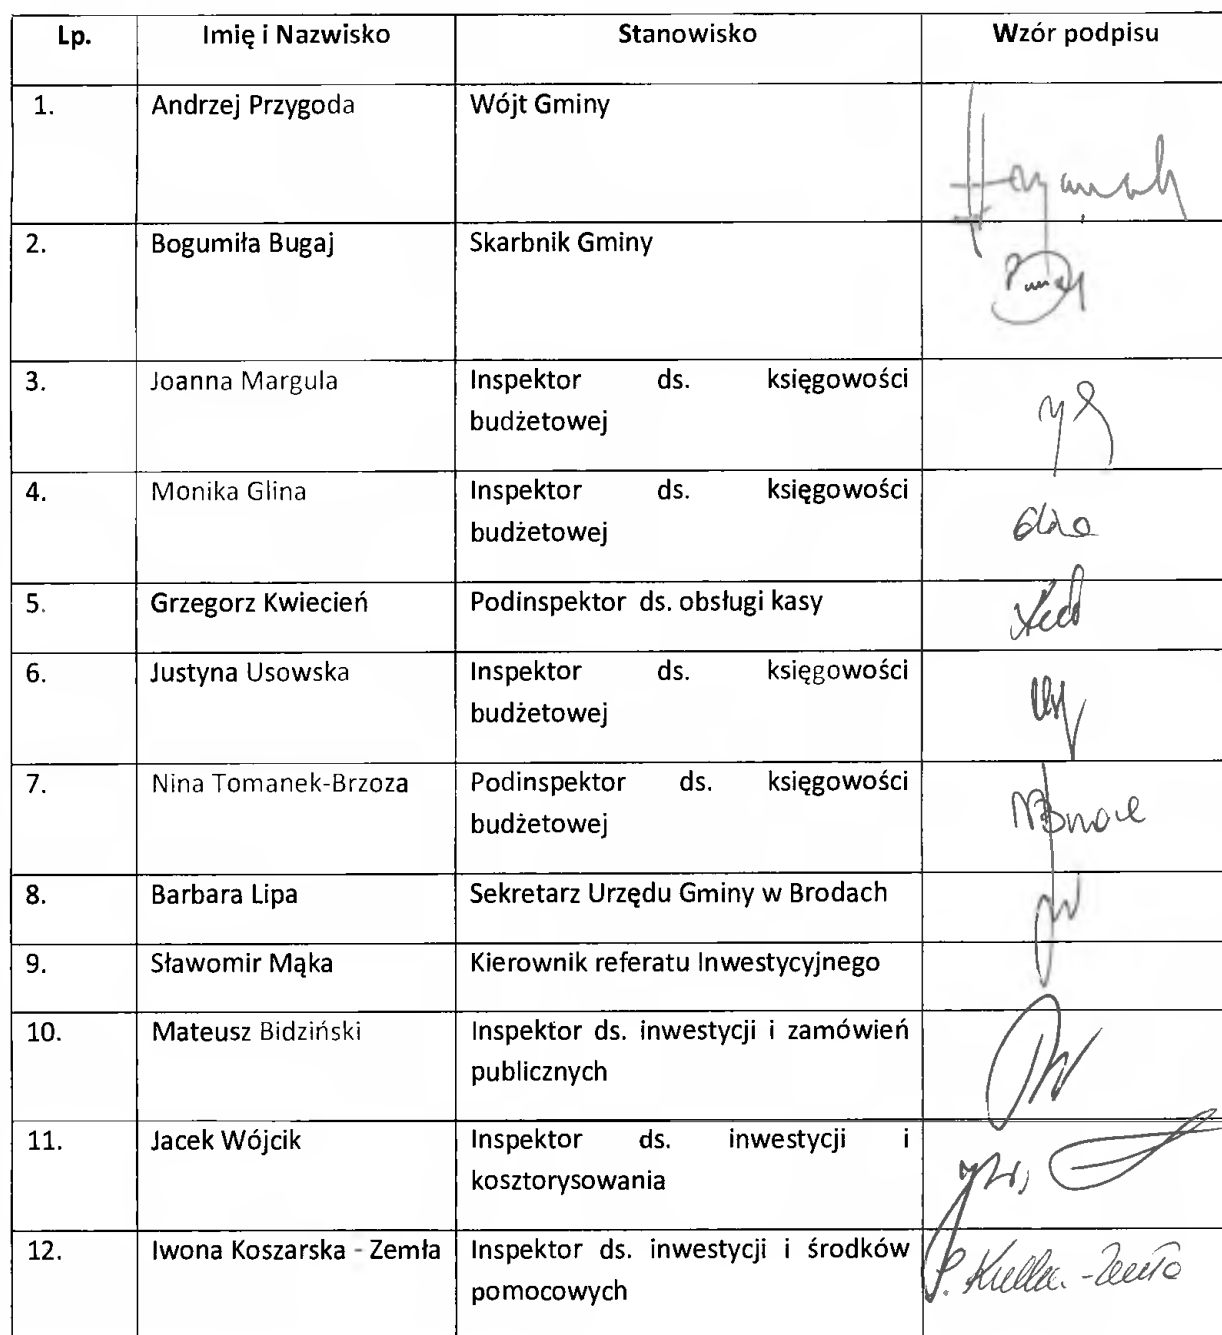 Lp. Imię i Nazwisko Stanowisko Wzór podpisu
1. Andrzej Przygoda Wójt Gminy
2. Bogumiła Bugaj Skarbnik Gminy
3. Joanna Margula Inspektor ds. księgowości
budżetowej
4. Monika Glina Inspektor ds. księgowości
budżetowej
5. Grzegorz Kwiecień Podinspektor ds. obsługi kasy
6. Justyna Usowska Inspektor ds. księgowości
budżetowej
7. Nina Tomanek-Brzoza Podinspektor ds. księgowości
budżetowej
8. Barbara Lipa Sekretarz Urzędu Gminy w Brodach
9. Sławomir Mąka Kierownik referatu Inwestycyjnego
10. Mateusz Bidziński Inspektor ds. inwestycji i zamówień
publicznych
11. Jacek Wójcik Inspektor ds. inwestycji i
kosztorysowania
12. Iwona Koszarska - Zemła Inspektor ds. inwestycji i środków
pomocowych